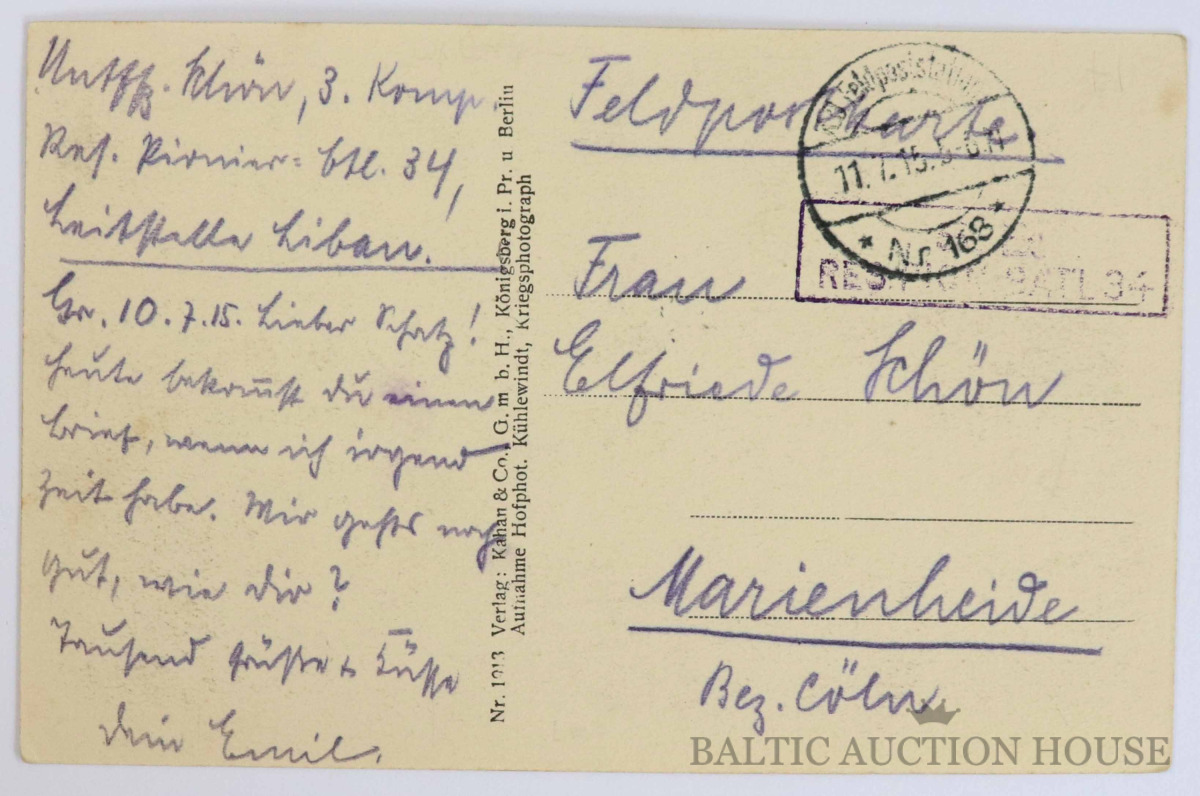 Untffz. Schön, 3. Komp.
Res. Pionier-Btl. 34,
Leitstelle Libau.
Gr. 10.7.15. Lieber Schatz!
Heute bekom̅st du einen
Brief, wenn ich irgend
Zeit habe. Mir gehts noch
gut, wie dir?
Tausend Grüße + Küsse
dein Emil.
Nr. 1913 Verlag: Kahan & Co., G. m b. H., Königsberg i. Pr. u Berlin
Aufnahme Hofphot. Kühlewindt, Kriegsphotograph
Feldpostkarte
Feldpoststation
11.7.15.5-6.N
* Nr. 168 *
RES. BATL 34
Frau
Elfriede Schön
Marienheide
Bez. Cöln
BALTIC AUCTION HOUSE